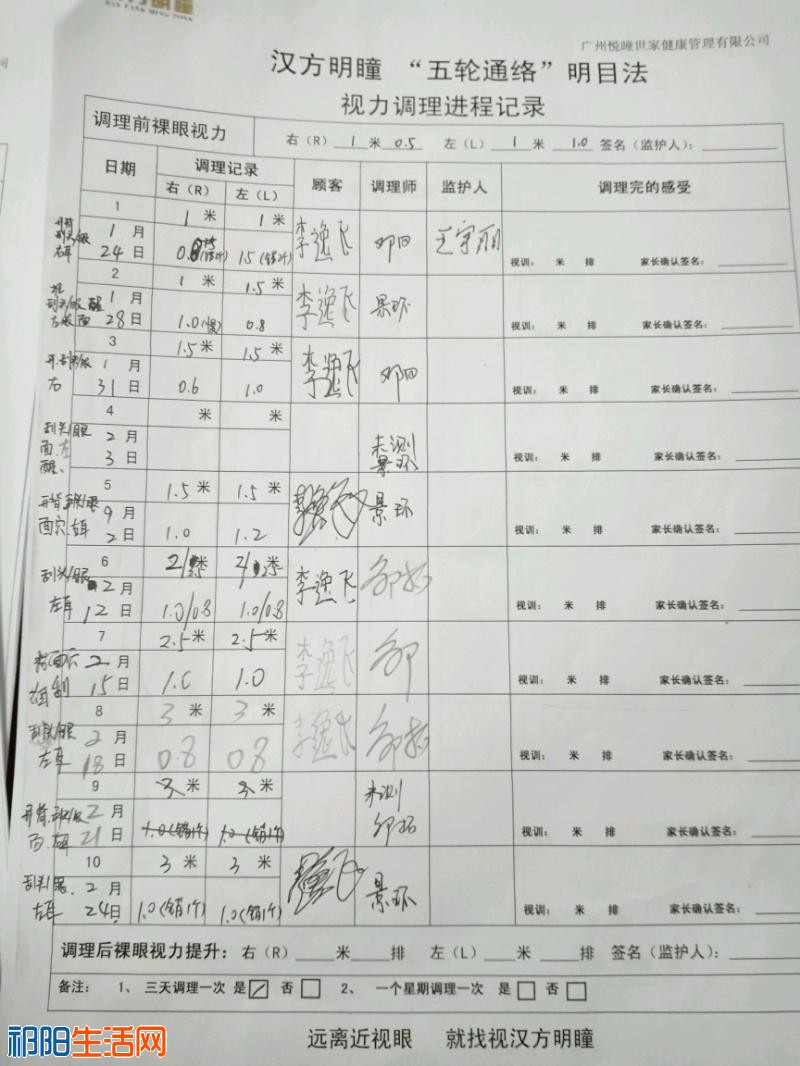 方明瞳
广州悦瞳世家健康管理有限公司
汉方明瞳 “五轮通络”明目法
视力调理进程记录
调理前裸眼视力 右（R） 1 米 0.5 左（L） 1 米 1.0 签名（监护人）：
日期 调理记录 顾客 调理师 监护人 调理完的感受
右（R） 左（L）
1 1 米 1 米
1 月 李逸飞
24 日 视训： 米 排 家长确认签名：
2 1 米 1.5 米
1 月 李逸飞 景环
28 日 1.0(慢) 0.8 视训： 米 排 家长确认签名：
3 1.5 米 1.5 米
1 月 李逸飞
右 31 日 0.6 1.0 视训： 米 排 家长确认签名：
4 米 米
刮头/眼 2 月 未测
3 日 景环 视训： 米 排 家长确认签名：
5 1.5 米 1.5 米
月 景环
2 日 1.0 1.2 视训： 米 排 家长确认签名：
6 米 米
刮头/眼 2 月 李逸飞
左耳 12 日 1.0/0.8 1.0/0.8 视训： 米 排 家长确认签名：
7 2.5 米 2.5 米
2 月 李逸飞
15 日 1.0 1.0 视训： 米 排 家长确认签名：
8 3 米 3 米
刮头/眼 2 月 李逸飞
左耳 18 日 0.8 0.8 视训： 米 排 家长确认签名：
9 3 米 3 米
2 月 未测
21 日 1.0(错1个) 1.0(错1个) 视训： 米 排 家长确认签名：
10 3 米 3 米
刮头/眼 2 月 景环
左耳 24 日 1.0(错1个) 1.0(错1个) 视训： 米 排 家长确认签名：
调理后裸眼视力提升： 右（R） 米 排 左（L） 米 排 签名（监护人）：
备注： 1、 三天调理一次 是 否 2、 一个星期调理一次 是 否
远离近视眼 就找视汉方明瞳
祁阳生活网